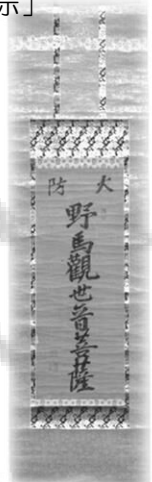 示」
火防
野馬觀世音菩薩